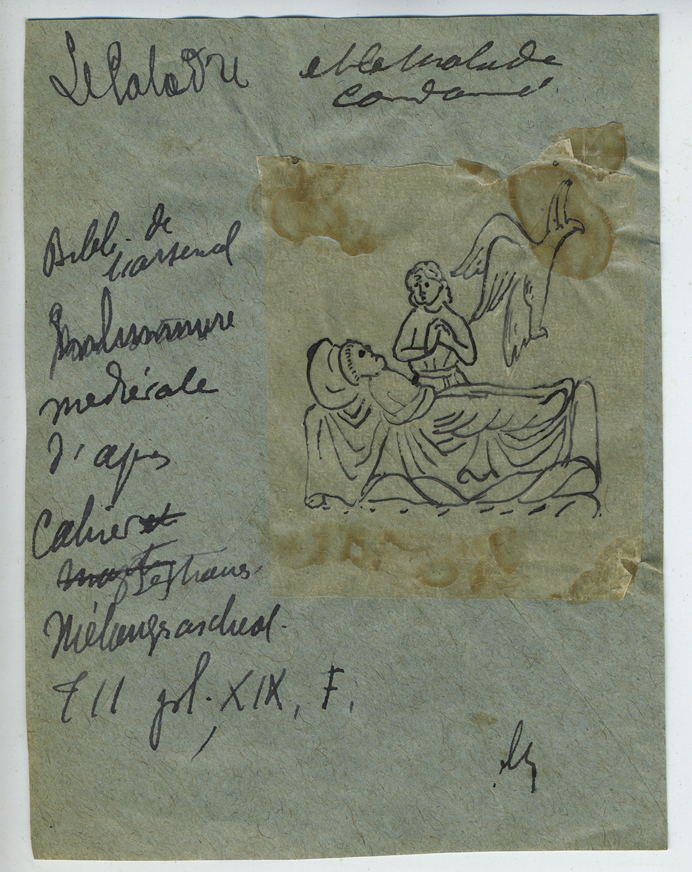 Le Caladre
et le Malade
Condamné
Bibl. de
l'arsenal
Enluminure
mediévale
d'apres
Cahier et
Mélanges archeol.
T II pl. XIX, F.